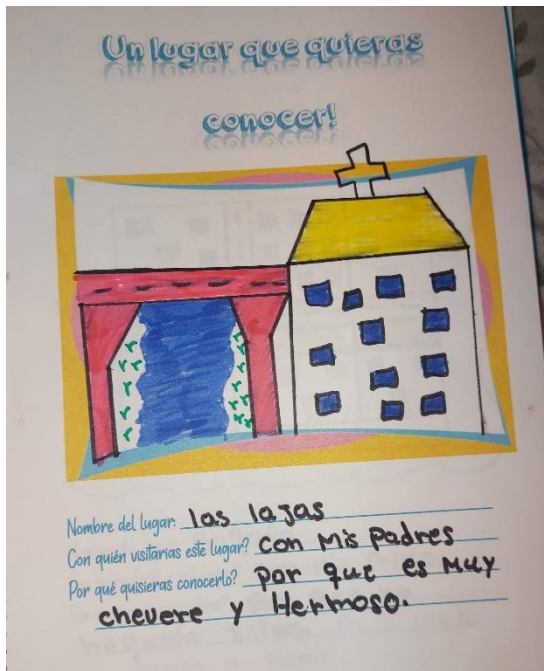 Un lugar que quieras
conocer!
Nombre del lugar: las lajas
Con quién visitarías este lugar? con Mis padres
Por qué quisieras conocerlo? por que es Muy
chevere y Hermoso.